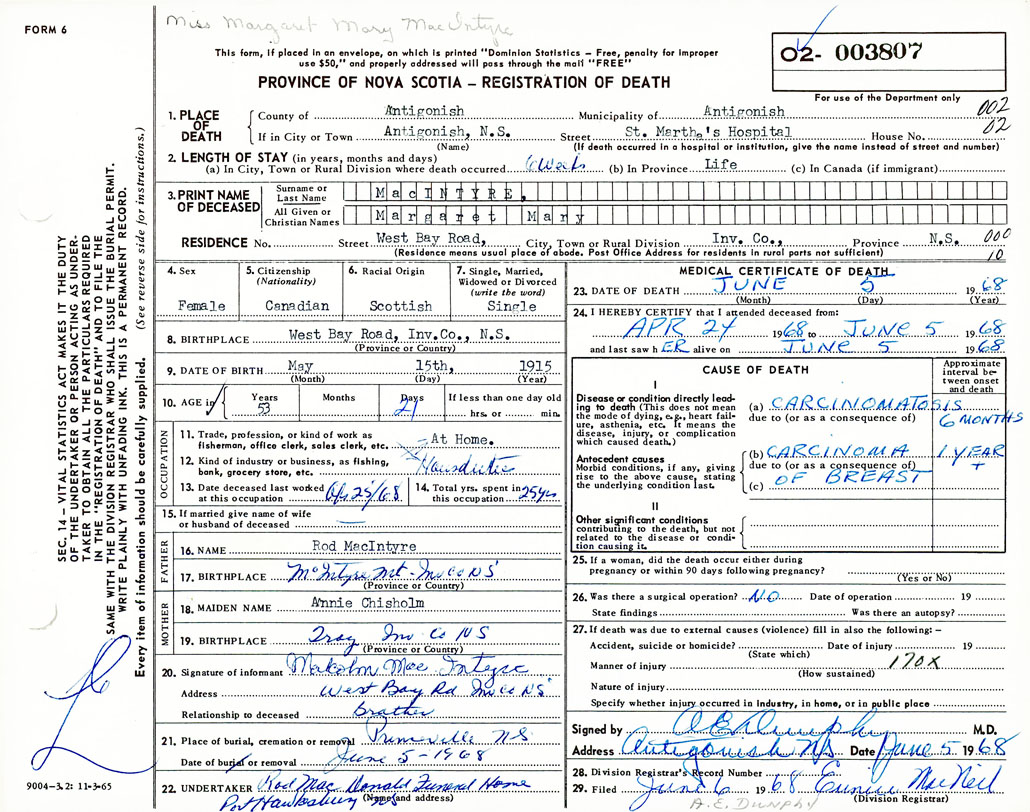 Miss Margaret Mary MacIntyre
FORM 6
This form, if placed in an envelope, on which is printed "Dominion Statistics – Free, penalty for improper
use $50," and properly addressed will pass through the mail "FREE"
PROVINCE OF NOVA SCOTIA – REGISTRATION OF DEATH
02- 003807
For use of the Department only
1. PLACE OF DEATH County of Antigonish Municipality of Antigonish 002
If in City or Town Antigonish, N.S. Street St. Martha's Hospital House No. 02
(Name) (If death occurred in a hospital or institution, give the name instead of street and number)
2. LENGTH OF STAY (in years, months and days)
(a) In City, Town or Rural Division where death occurred 6 Weeks (b) In Province Life (c) In Canada (if immigrant)
3. PRINT NAME OF DECEASED Surname or Last Name MacINTYRE,
All Given or Christian Names Margaret Mary
RESIDENCE No. Street West Bay Road, City, Town or Rural Division Inv. Co., Province N.S. 000
(Residence means usual place of abode. Post Office Address for residents in rural parts not sufficient) 10
4. Sex Female
5. Citizenship (Nationality) Canadian
6. Racial Origin Scottish
7. Single, Married, Widowed or Divorced (write the word) Single
8. BIRTHPLACE West Bay Road, Inv.Co., N.S.
(Province or Country)
9. DATE OF BIRTH May 15th, 1915
(Month) (Day) (Year)
10. AGE in Years 53 Months Days 21 If less than one day old
hrs. or min.
OCCUPATION
11. Trade, profession, or kind of work as
fisherman, office clerk, sales clerk, etc. At Home.
12. Kind of industry or business, as fishing,
bank, grocery store, etc. Housduties
13. Date deceased last worked
at this occupation Apr 25/68
14. Total yrs. spent in
this occupation 25 yrs
15. If married give name of wife
or husband of deceased —
FATHER
16. NAME Rod MacIntyre
17. BIRTHPLACE McIntyre Mt - Inv Co NS
(Province or Country)
MOTHER
18. MAIDEN NAME Annie Chisholm
19. BIRTHPLACE Troy Inv Co NS
(Province or Country)
20. Signature of informant Malcolm Mac Intyre
Address West Bay Rd Inv Co NS
Relationship to deceased brother
21. Place of burial, cremation or removal Princeville NS
Date of burial or removal June 5 - 1968
22. UNDERTAKER Rod Mac Donald Funeral Home
Port Hawkesbury
(Name and address)
MEDICAL CERTIFICATE OF DEATH
23. DATE OF DEATH JUNE 5 1968
(Month) (Day) (Year)
24. I HEREBY CERTIFY that I attended deceased from:
APR 24 1968 to JUNE 5 1968
and last saw hER alive on JUNE 5 1968
CAUSE OF DEATH
Approximate interval between onset and death
I
Disease or condition directly leading to death (This does not mean the mode of dying, e.g., heart failure, asthenia, etc. It means the disease, injury, or complication which caused death.)
(a) CARCINOMATOSIS
due to (or as a consequence of) 6 MONTHS
Antecedent causes
Morbid conditions, if any, giving rise to the above cause, stating the underlying condition last.
(b) CARCINOMA 1 YEAR +
due to (or as a consequence of)
(c) OF BREAST
II
Other significant conditions
contributing to the death, but not related to the disease or condition causing it.
25. If a woman, did the death occur either during
pregnancy or within 90 days following pregnancy?
(Yes or No)
26. Was there a surgical operation? NO Date of operation 19
State findings Was there an autopsy?
27. If death was due to external causes (violence) fill in also the following: –
Accident, suicide or homicide? Date of injury 19
(State which)
Manner of injury 170X
(How sustained)
Nature of injury
Specify whether injury occurred in industry, in home, or in public place
Signed by A E Dunphy M.D.
Address Antigonish NS Date June 5 1968
28. Division Registrar's Record Number
29. Filed June 6 1968 MacNeil
(Division Registrar)
A.E. DUNPHY
SEC. 14 – VITAL STATISTICS ACT MAKES IT THE DUTY
OF THE UNDERTAKER OR PERSON ACTING AS UNDER-
TAKER TO OBTAIN ALL THE PARTICULARS REQUIRED
IN THE "REGISTRATION OF DEATH" AND TO FILE THE
SAME WITH THE DIVISION REGISTRAR WHO SHALL ISSUE THE BURIAL PERMIT.
WRITE PLAINLY WITH UNFADING INK. THIS IS A PERMANENT RECORD.
Every item of information should be carefully supplied. (See reverse side for instructions.)
9004-3.2: 11-3-65